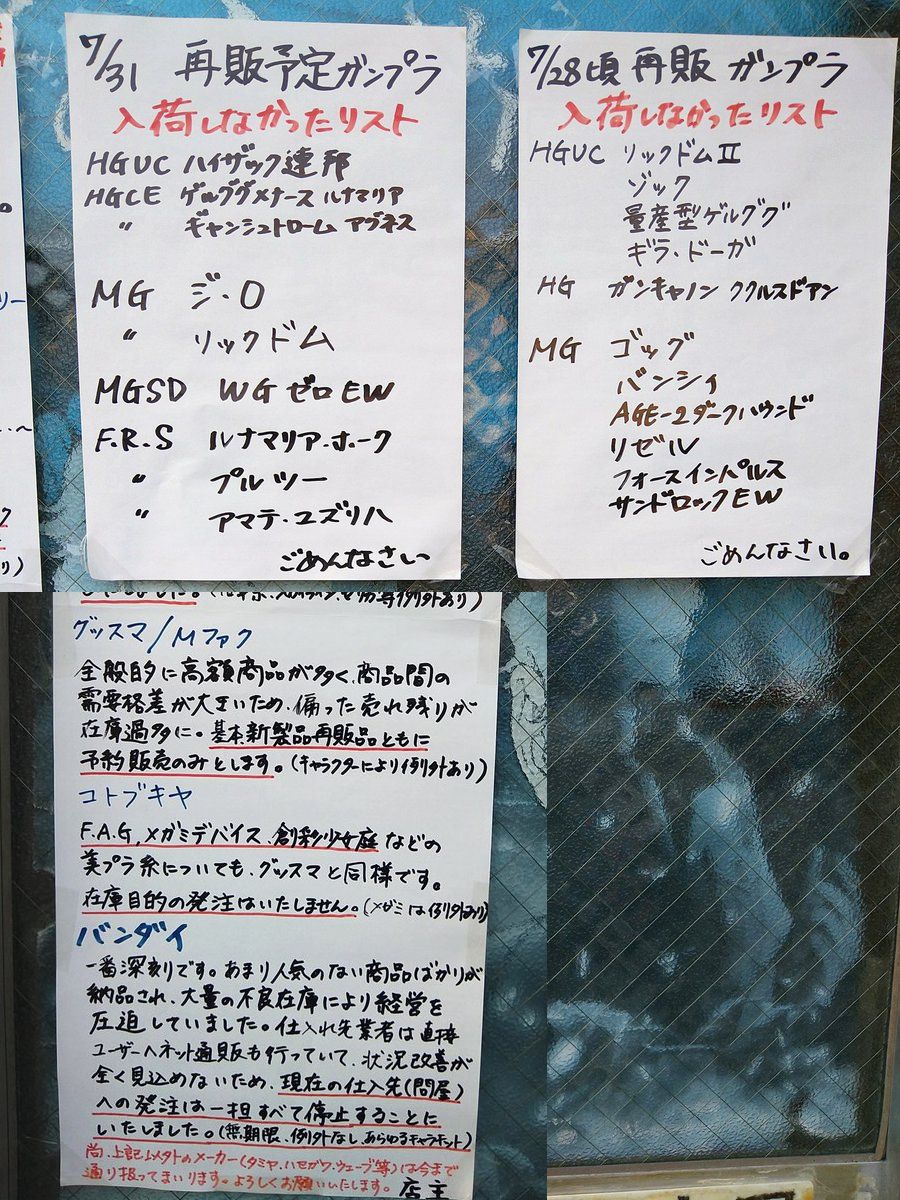 7/31 再販予定ガンプラ
入荷しなかったリスト
HGUC ハイザック連邦
HGCE ゲルググメナース ルナマリア
〃 ギャンシュトローム アグネス
MG ジ・O
〃 リックドム
MGSD WGゼロEW
F.R.S ルナマリア・ホーク
〃 プルツー
〃 アマテ・ユズリハ
ごめんなさい
7/28頃 再販 ガンプラ
入荷しなかったリスト
HGUC リックドムⅡ
ゾック
量産型ゲルググ
ギラ・ドーガ
HG ガンキャノン ククルスドアン
MG ゴッグ
バンシィ
AGE-2ダークハウンド
リゼル
フォースインパルス
サンドロックEW
ごめんなさい。
グッスマ/Mファク
全般的に高額商品が多く、商品間の
需要格差が大きいため、偏った売れ残りが
在庫過多に。基本、新製品再販品ともに
予約販売のみとします。(キャラクターにより例外あり)
コトブキヤ
F.A.G、メガミデバイス、創彩少女庭などの
美プラ系についても、グッスマと同様です。
在庫目的の発注はいたしません。(メガミは例外あり)
バンダイ
一番深刻です。あまり人気のない商品ばかりが
納品され、大量の不良在庫により経営を
圧迫していました。仕入れ先業者は直接
ユーザーへネット通販も行っていて、状況改善が
全く見込めないため、現在の仕入先(問屋)
への発注は一担すべて停止することに
いたしました。(無期限、例外なし、あらゆるキャラキット)
尚、上記以外のメーカー(タミヤ、ハセガワ、ウェーブ等)は今まで
通り扱ってまいります。よろしくお願いいたします。 店主